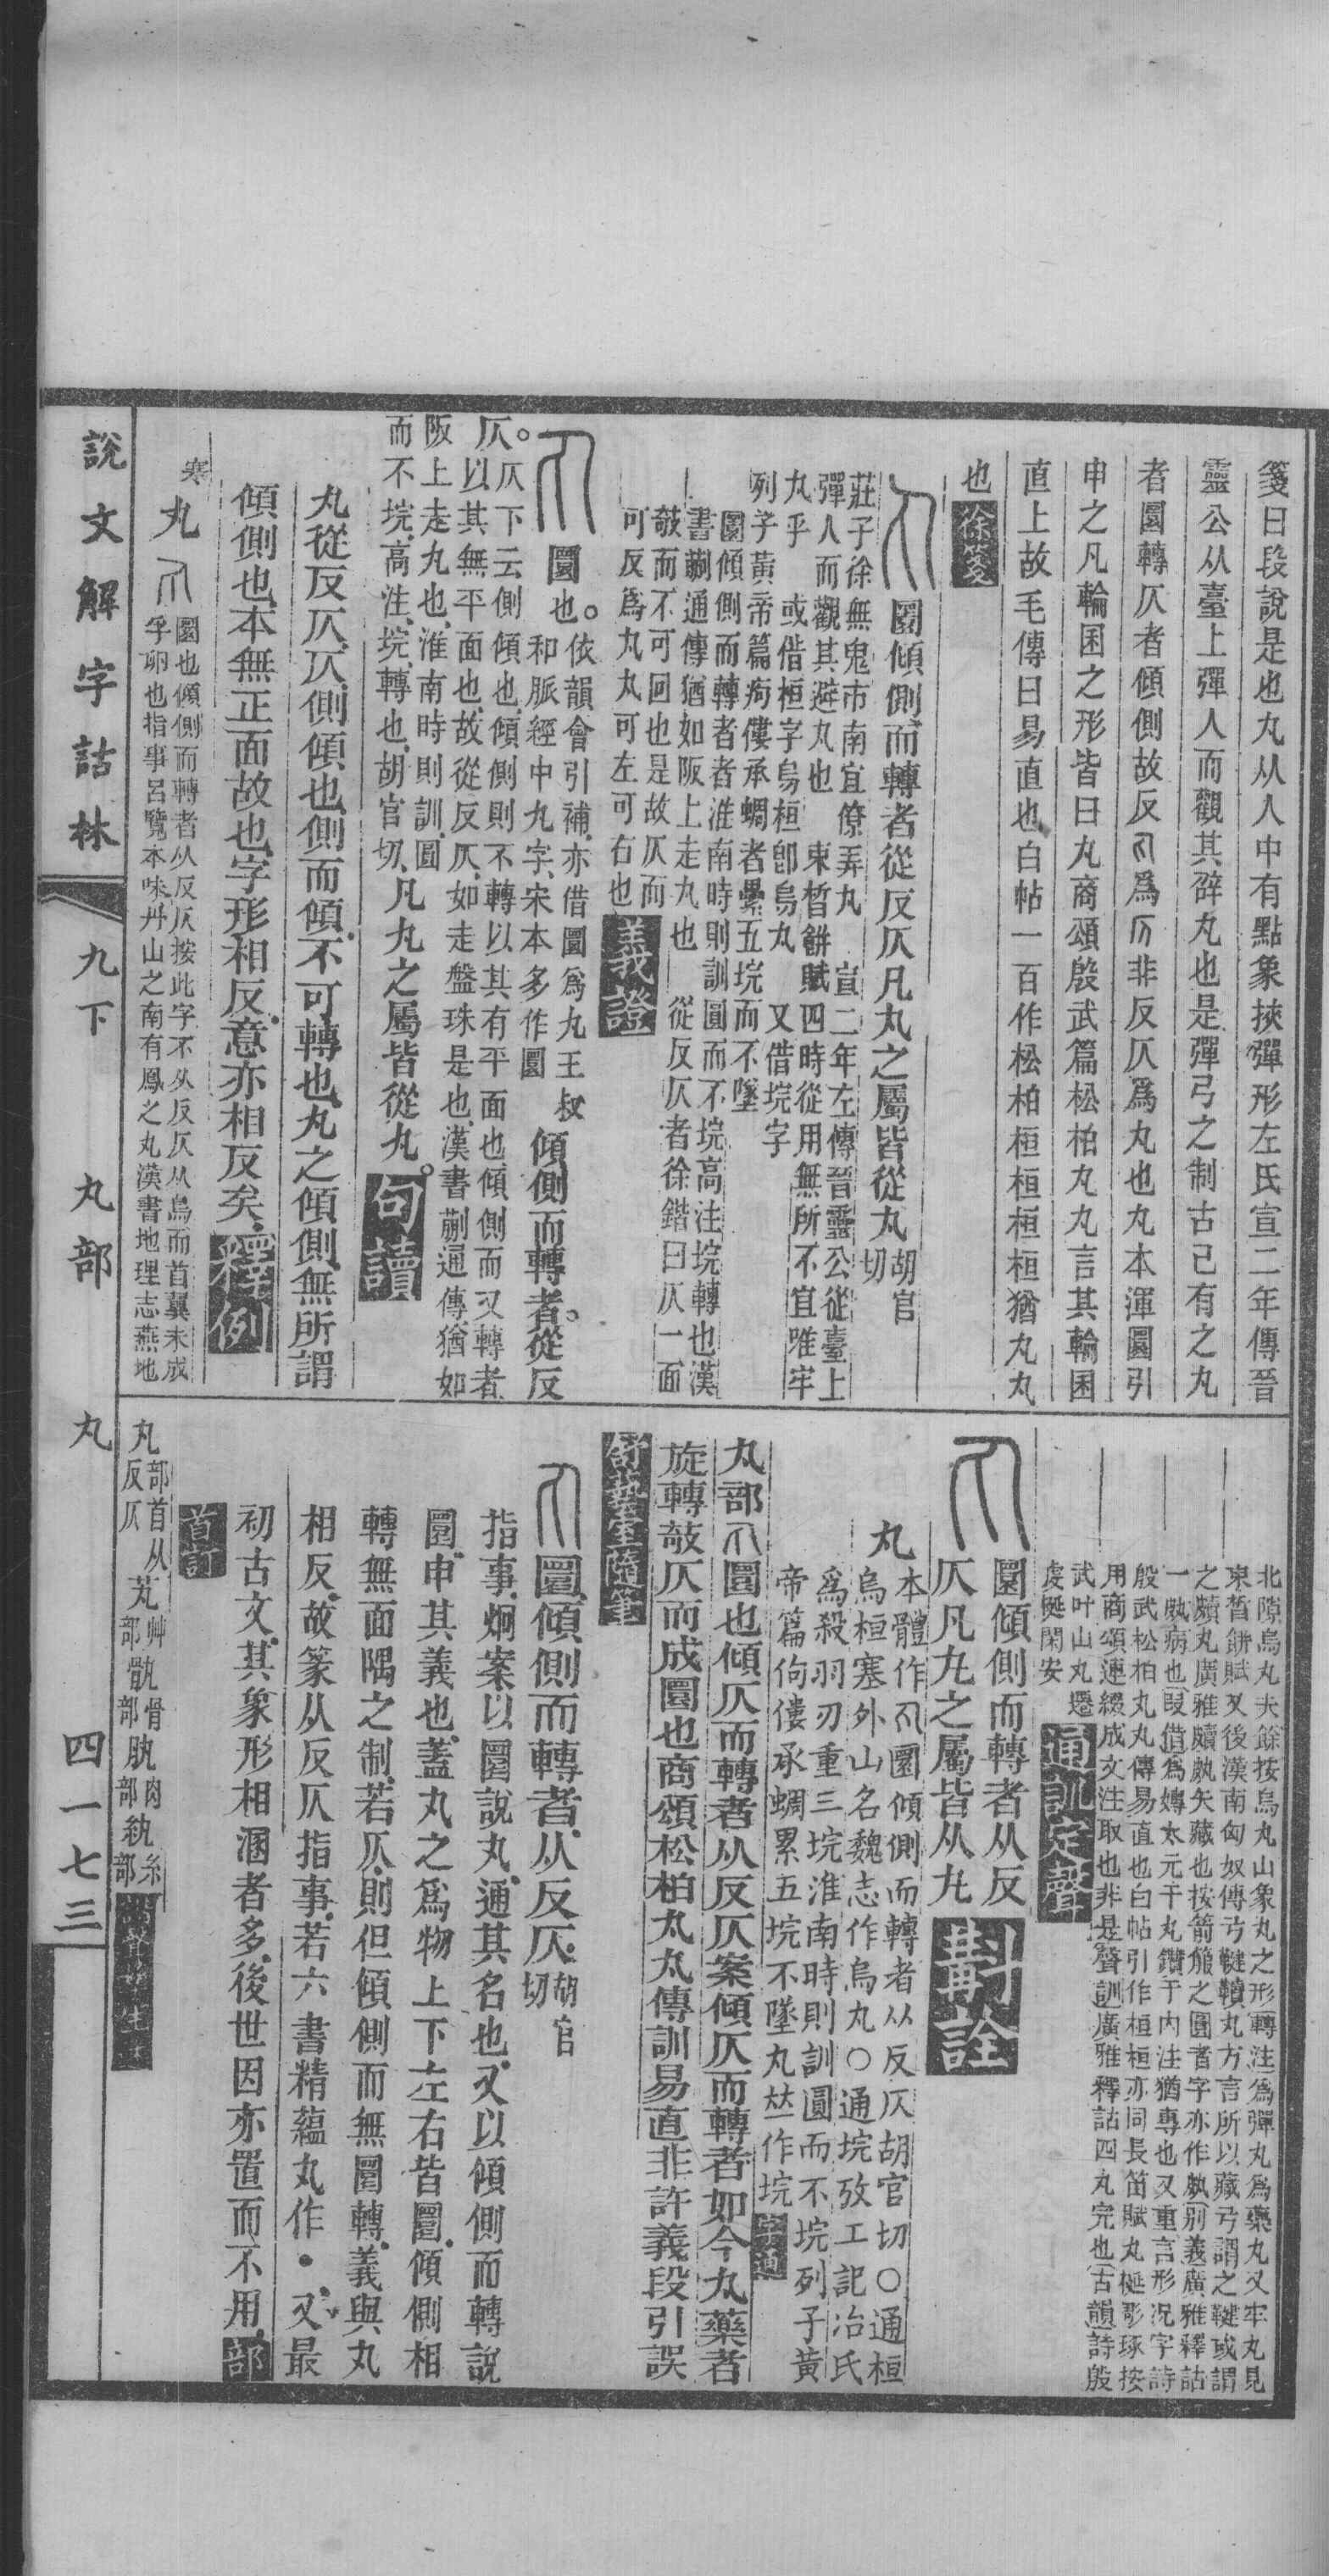 箋曰段說是也丸从人中有點象挾彈形左氏宣二年傳晉
靈公从臺上彈人而觀其辟丸也是彈弓之制古已有之丸
者圜轉仄者傾側故反為非反仄為丸也丸本渾圜引
申之凡輪囷之形皆曰丸商頌殷武篇松柏丸丸言其輪囷
直上故毛傳曰易直也白帖一百作松柏桓桓桓桓猶丸丸
也 徐箋
圜傾側而轉者從反仄凡丸之屬皆從丸 胡官切
莊子徐無鬼市南宜僚弄丸 宣二年左傳晉靈公從臺上
彈人而觀其避丸也 束晳餅賦四時從用無所不宜唯牢
丸乎 或借桓字烏桓卽烏丸 又借垸字
列子黃帝篇痀僂承蜩者纍五垸而不墜
圜傾側而轉者者淮南時則訓圓而不垸高注垸轉也漢
書蒯通傳猶如阪上走丸也 從反仄者徐鍇曰仄一面
敧而不可回也是故仄而
可反爲丸丸可左可右也 義證
圜也。依韻會引補、亦借圜爲丸王叔
和脈經中丸字、宋本多作圜 傾側而轉者。從反
仄。仄下云側傾也、傾側則不轉以其有平面也傾側而又轉者
以其無平面也、故從反仄、如走盤珠是也、漢書蒯通傳、猶如
阪上走丸也、淮南時則訓、圜
而不垸、高注、垸、轉也、胡官切、凡丸之屬皆從丸。 句讀
丸從反仄、仄、側傾也、側而傾、不可轉也、丸之傾側、無所謂
傾側也、本無正面故也、字形相反、意亦相反矣、 釋例
寒 丸 圜也傾側而轉者从反仄按此字不从反仄从鳥而首翼未成
孚卵也指事呂覽本味丹山之南有鳳之丸漢書地理志燕地
北隙烏丸夫餘按烏丸山象丸之形轉注爲彈丸爲藥丸又牢丸見
束晳餅賦又後漢南匈奴傳弓鞬韥丸方言所以藏弓謂之鞬或謂
之韥丸廣雅韥𩊅矢藏也按箭箙之圜者字亦作𩊅別義廣雅釋詁
一𩊅病也叚借爲嫥太元干丸鑽于內注猶專也又重言形况字詩
殷武松柏丸丸傳易直也白帖引作桓桓亦同長笛賦丸梴彫琢按
用商頌連綴成文注取也非是聲訓廣雅釋詁四丸完也古韻詩殷
武叶山丸遷
虔梴閑安 通訓定聲
圜傾側而轉者从反
仄凡丸之屬皆从丸 斠詮
丸 本體作圜傾側而轉者从反仄胡官切〇通桓
烏桓塞外山名魏志作烏丸〇通垸攷工記冶氏
爲殺矢刃重三垸淮南時則訓圓而不垸列子黃
帝篇佝僂承蜩累五垸不墜丸竝作垸
丸部圜也傾仄而轉者从反仄案傾仄而轉者如今丸藥者
旋轉敧仄而成圜也商頌松柏丸丸傳訓易直非許義段引誤
舒藝室隨筆
圜、傾側而轉者、从反仄、 胡官切
指事、炯案以圜說丸、通其名也、又以傾側而轉說
圜、申其義也、蓋丸之爲物上下左右皆圜、傾側相
轉無面隅之制、若仄、則但傾側而無圜轉、義與丸
相反、故篆从反仄指事、若六書精蘊丸作●、又、最
初古文、其象形相溷者多、後世因亦置而不用、 部
首訂
丸 部首从反仄 芄 艸部 骩 骨部 肒 肉部 紈 糸部
說文解字詁林 九下 丸部 丸 四一七三